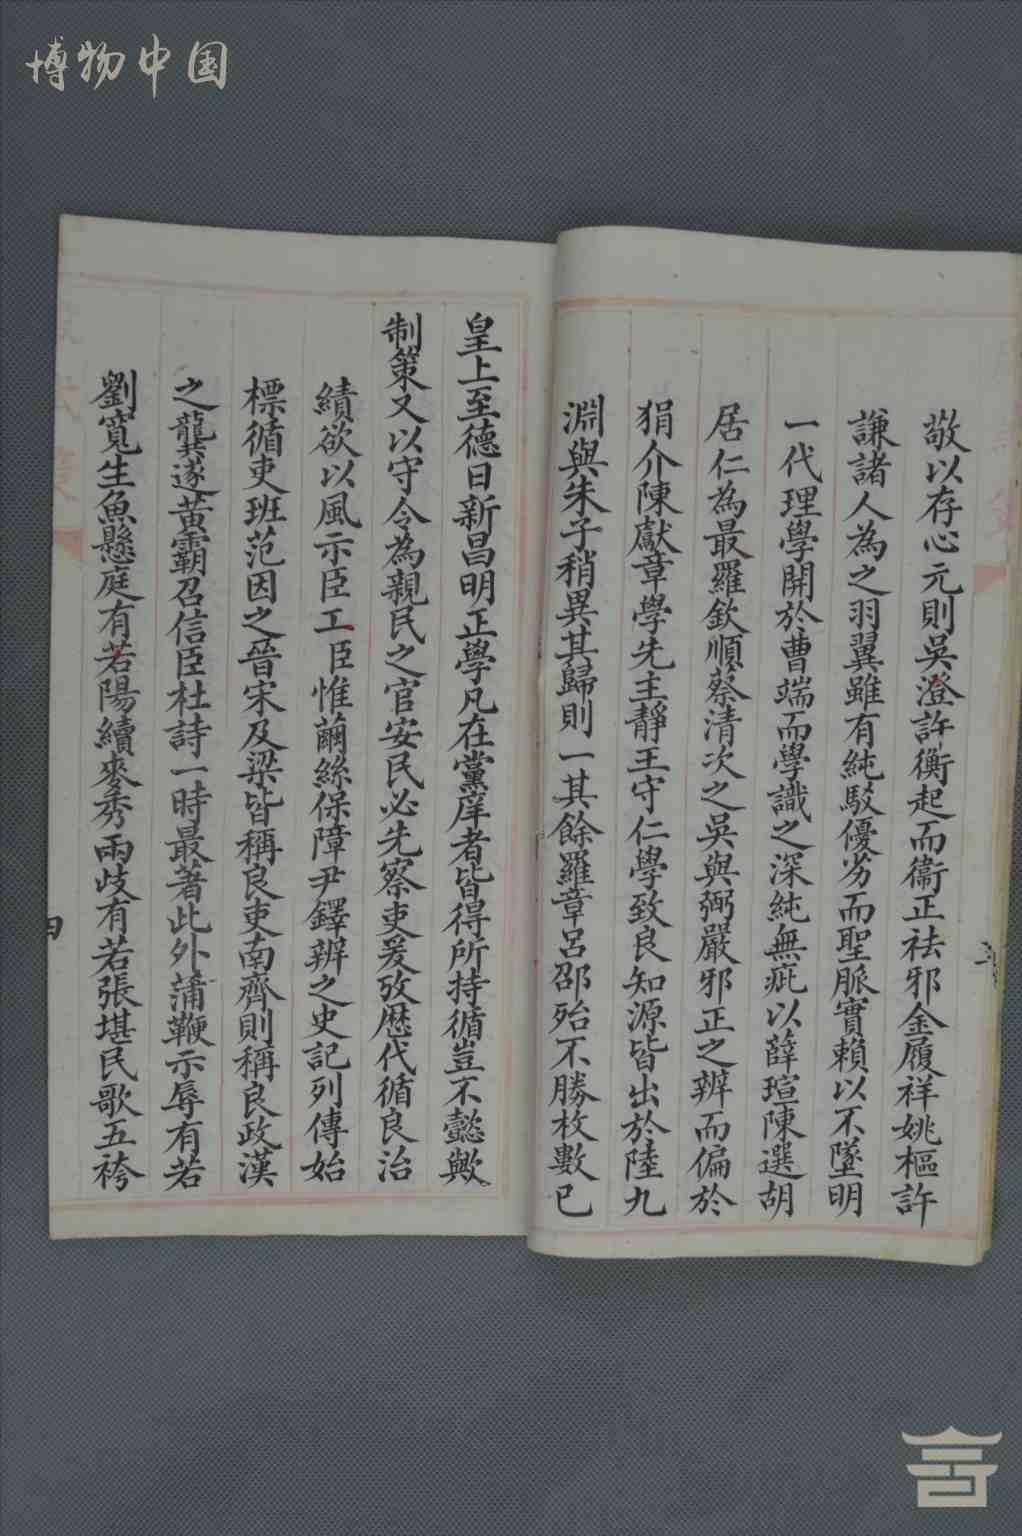 博物中国
敬以存心元則吳澄許衡起而衞正祛邪金履祥姚樞許
謙諸人為之羽翼雖有純駁優劣而聖脈實賴以不墜明
一代理學開於曹端而學識之深純無疵以薛瑄陳選胡
居仁為最羅欽順蔡清次之吳與弼嚴邪正之辨而偏於
狷介陳獻章學先主靜王守仁學致良知源皆出於陸九
淵與朱子稍異其歸則一其餘羅章呂邵殆不勝枚數已
皇上至德日新昌明正學凡在黨庠者皆得所持循豈不懿歟
制策又以守令為親民之官安民必先察吏爰攷歷代循良治
績欲以風示臣工臣惟繭絲保障尹鐸辨之史記列傳始
標循吏班范因之晉宋及梁皆稱良吏南齊則稱良政漢
之龔遂黃霸召信臣杜詩一時最著此外蒲鞭示辱有若
劉寬生魚懸庭有若陽續麥秀兩歧有若張堪民歌五袴
四